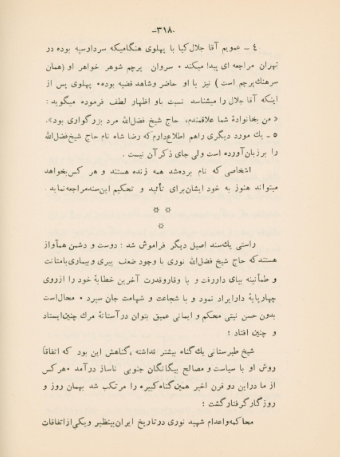 -۳۱۸-
٤ - عمویم آقا جلال کیا با پهلوی هنگامیکه سردارسپه بوده در
تهران مراجعه ای پیدا میکند • سروان پرچم شوهر خواهر او (همان
سرهنگ پرچم است) نیز با او حاضر و شاهد قضیه بوده • پهلوی پس از
اینکه آقا جلال را میشناسد نسبت باو اظهار لطف فرموده میگوید :
« من بخانوادهٔ شما علاقمندم ، حاج شیخ فضل‌الله مرد بزرگواری بود ».
۵ - یك مورد دیگری راهم اطلاع دارم که رضا شاه نام حاج شیخ‌فضل‌الله
را بر زبان آورده است ولی جای ذکر آن نیست .
اشخاصی که نام برده شد همه زنده هستند و هر کس بخواهد
میتواند هنوز به خود ایشان برای تأئید و تحکیم این سند مراجعه نماید .
راستی یك سند اصیل دیگر فراموش شد : دوست و دشمن همآواز
هستند که حاج شیخ فضل‌الله نوری با وجود ضعف پیری و بیماری بامتانت
و طمأنینه بپای دار رفت و با وقار و قدرت آخرین خطابهٔ خود را از روی
چهارپایهٔ دار ایراد نمود و با شجاعت و شهامت جان سپرد • محال است
بدون حسن نیتی محکم و ایمانی عمیق بتوان در آستانهٔ مرك چنین ایستاد
و چنین افتاد !
شیخ طبرستانی یك گناه بیشتر نداشته ، گناهش این بود که اتفاقاً
روش او با سیاست و مصالح بیگانگان جنوبی ناساز درآمد • هر کس
از ما در این دو قرن اخیر همین گناه کبیره را مرتکب شد بهمان روز و
روزگار گرفتار گشت :
محاکمه و اعدام شهید نوری در تاریخ ایران بینظیر و یکی از اتفاقات